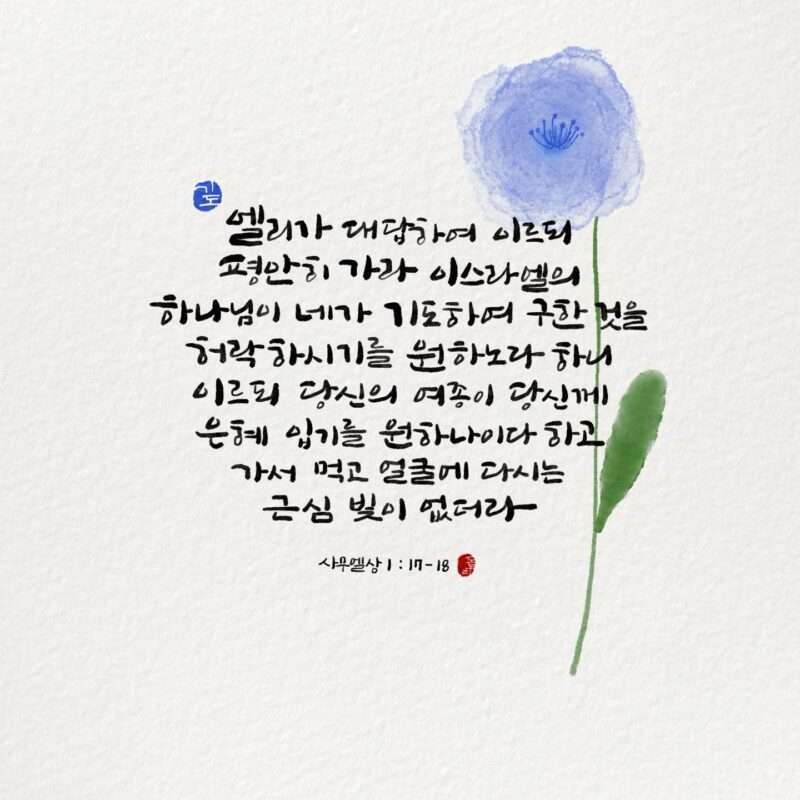 기도
엘리가 대답하여 이르되
평안히 가라 이스라엘의
하나님이 네가 기도하여 구한 것을
허락하시기를 원하노라 하니
이르되 당신의 여종이 당신께
은혜 입기를 원하나이다 하고
가서 먹고 얼굴에 다시는
근심 빛이 없더라
사무엘상 1:17-18